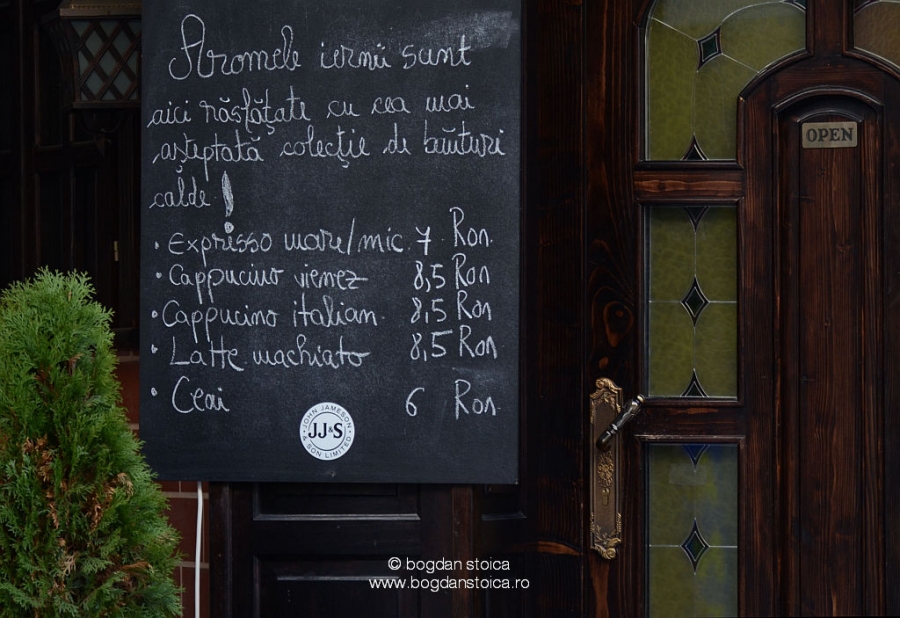 Aromele iernii sunt
aici răsfățate cu cea mai
așteptată colecție de băuturi
calde!
• Expresso mare/mic 7 Ron.
• Cappucino vienez 8,5 Ron
• Cappucino italian 8,5 Ron
• Latte machiato 8,5 Ron
• Ceai 6 Ron.
JOHN JAMESON
JJ&S
& SON LIMITED
OPEN
© bogdan stoica
www.bogdanstoica.ro